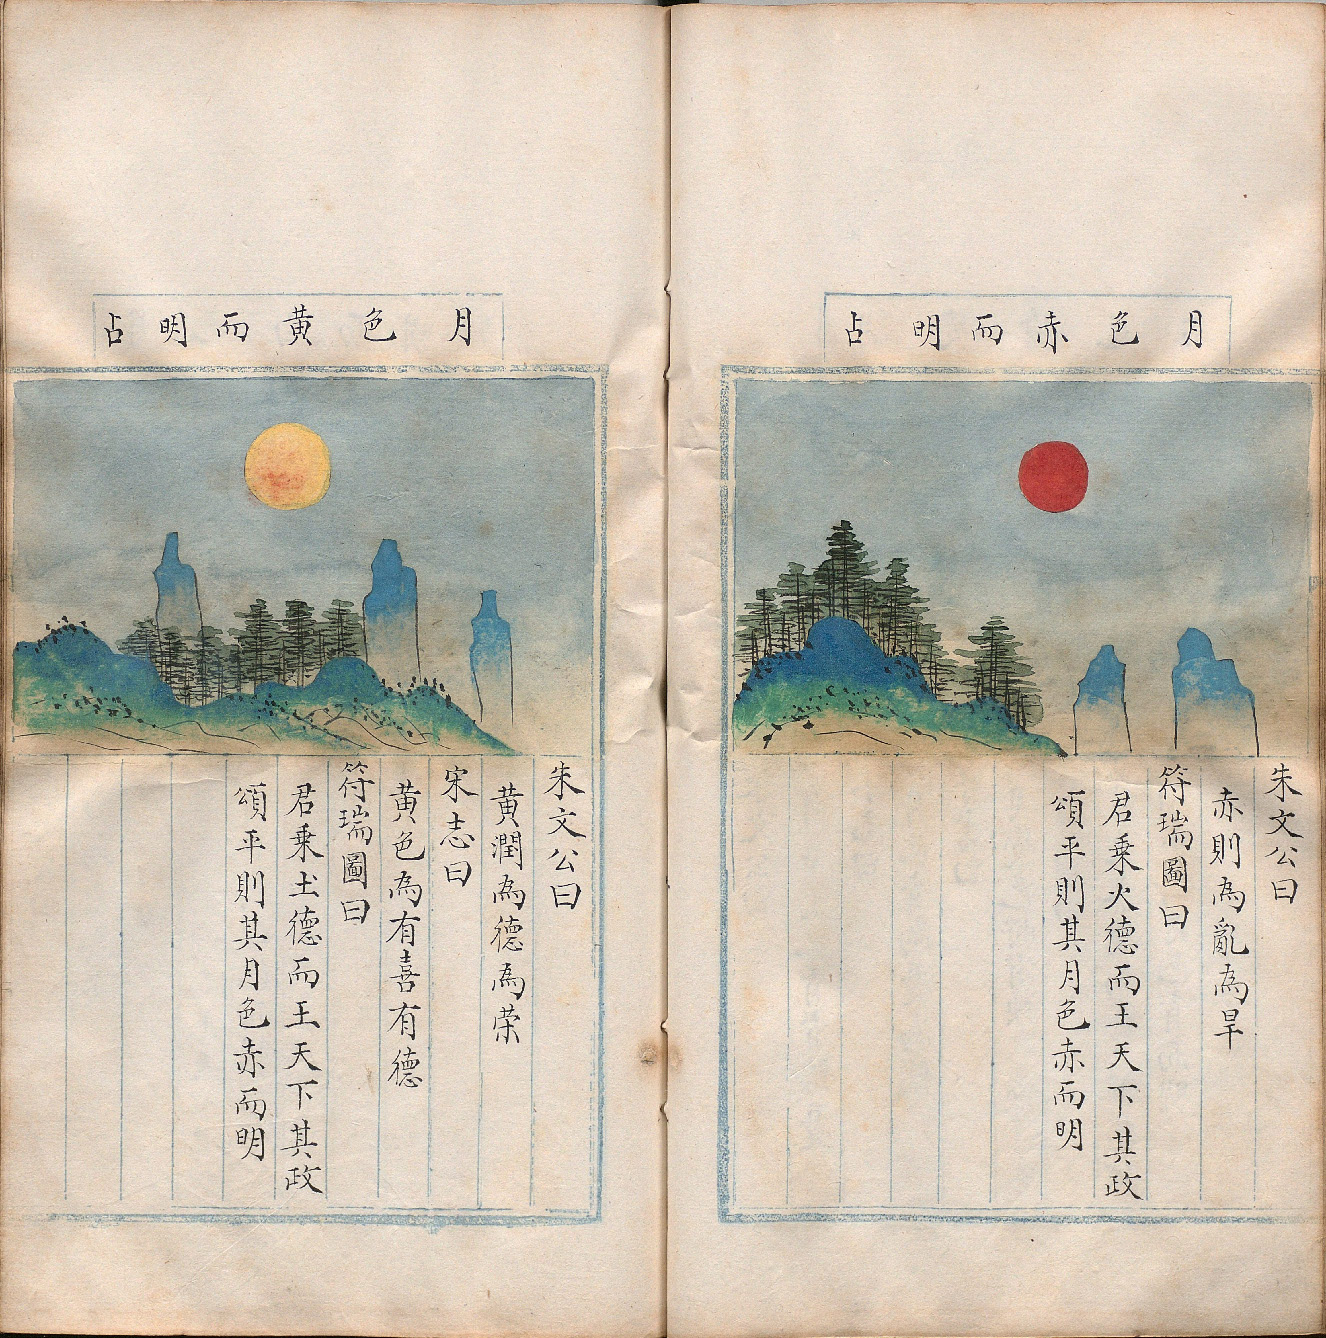 月色赤而明占
朱文公曰
赤則為亂為旱
符瑞圖曰
君乗火德而王天下其政
頌平則其月色赤而明
月色黃而明占
朱文公曰
黃潤為德為荣
宋志曰
黃色為有喜有德
符瑞圖曰
君乗土德而王天下其政
頌平則其月色赤而明